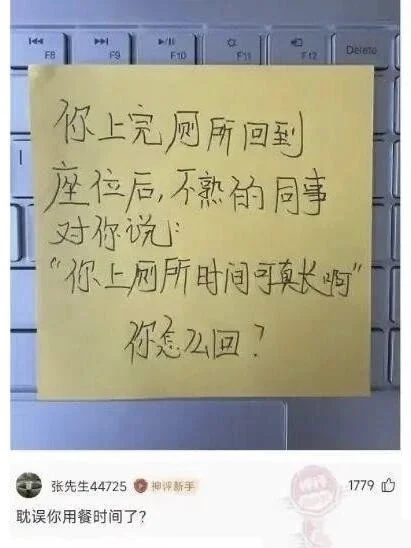 F8 F9 F10 F11 F12 Delete
你上完厕所回到
座位后,不熟的同事
对你说:
“你上厕所时间可真长啊”
你怎么回?
张先生44725 神评新手 1779
耽误你用餐时间了?
神评